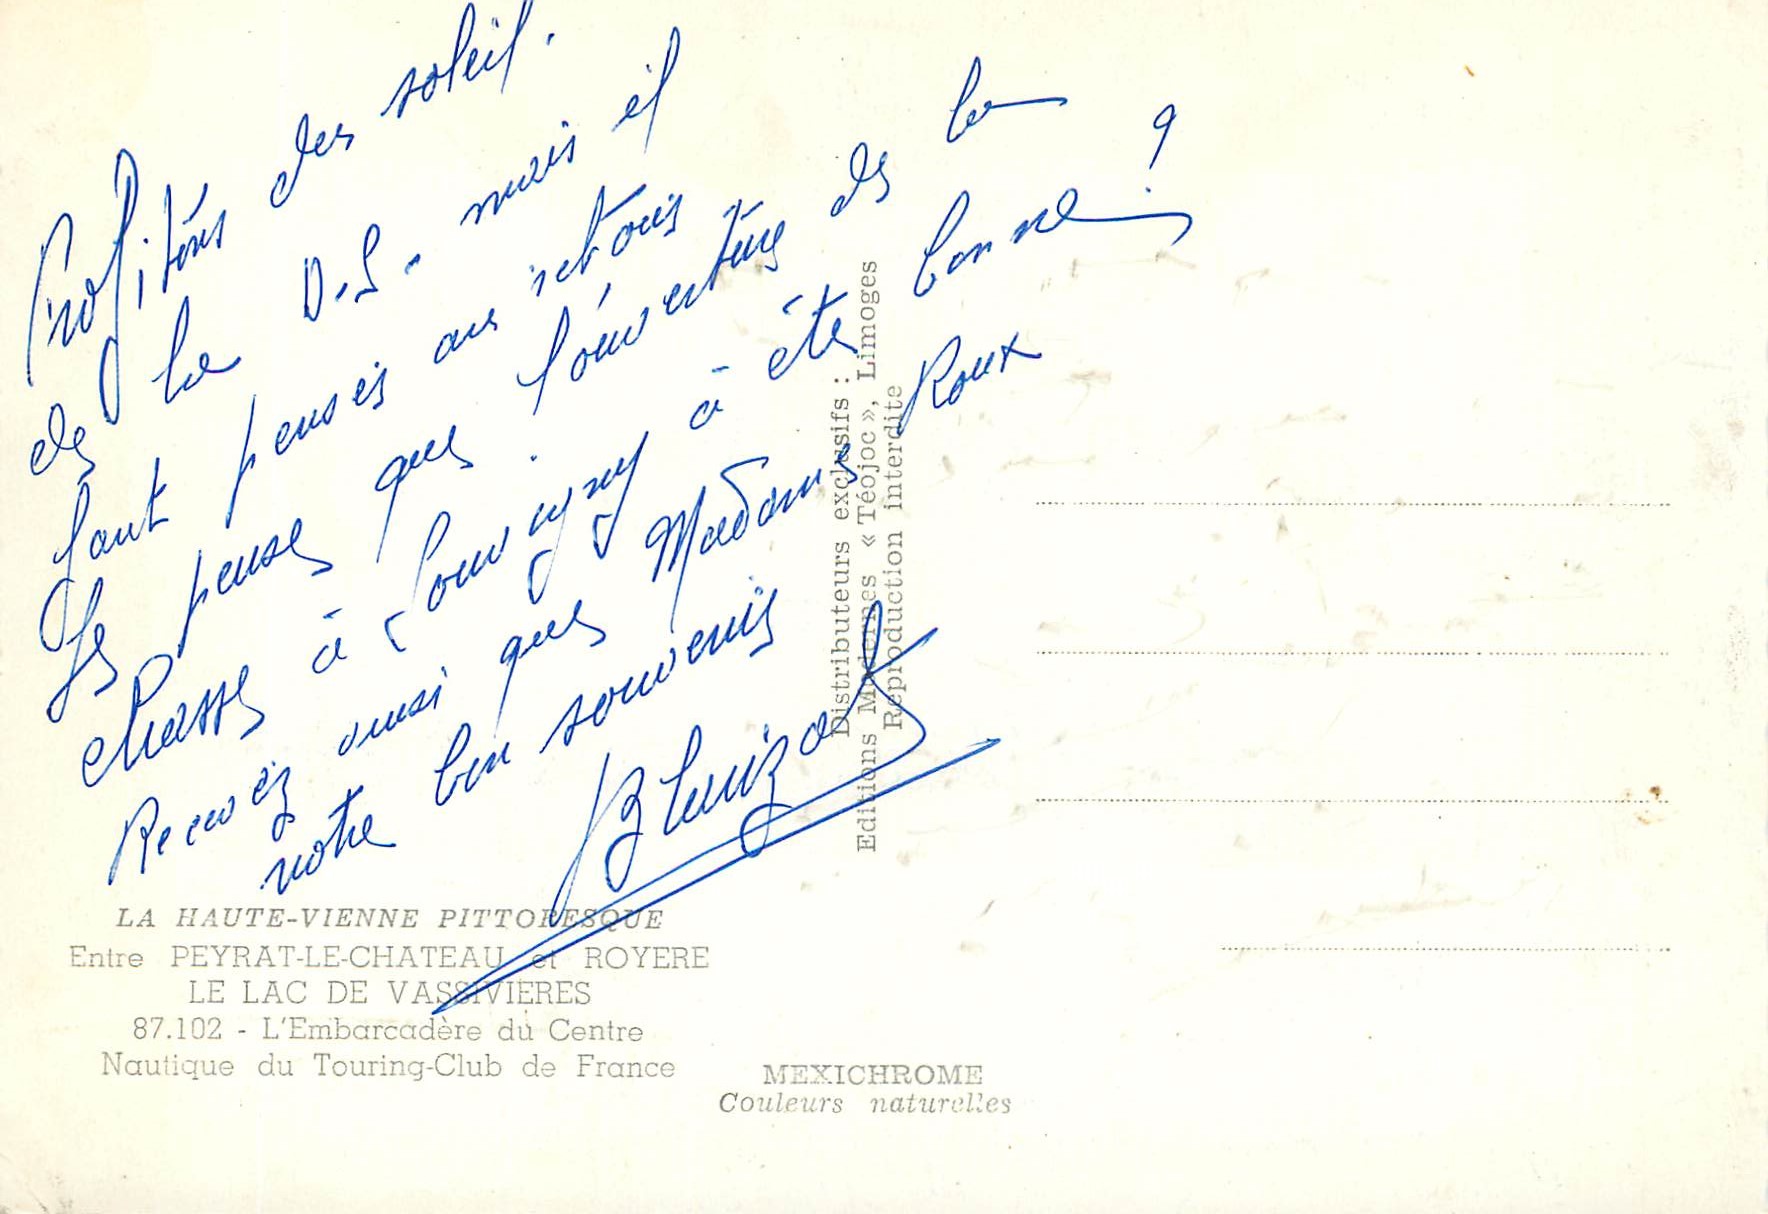 Profitons du soleil.
de la D.S. mais il
faut penser au retour
Je pense que l'ouverture de la
chasse à Louvigny a été bonne ?
Recevez ainsi que Madame Roux
notre bon souvenir
LA HAUTE-VIENNE PITTORESQUE
Entre PEYRAT-LE-CHATEAU et ROYERE
LE LAC DE VASSIVIERES
87.102 - L'Embarcadère du Centre
Nautique du Touring-Club de France
Distributeurs exclusifs :
Editions Modernes « Téojoc », Limoges
Reproduction interdite
MEXICHROME
Couleurs naturelles